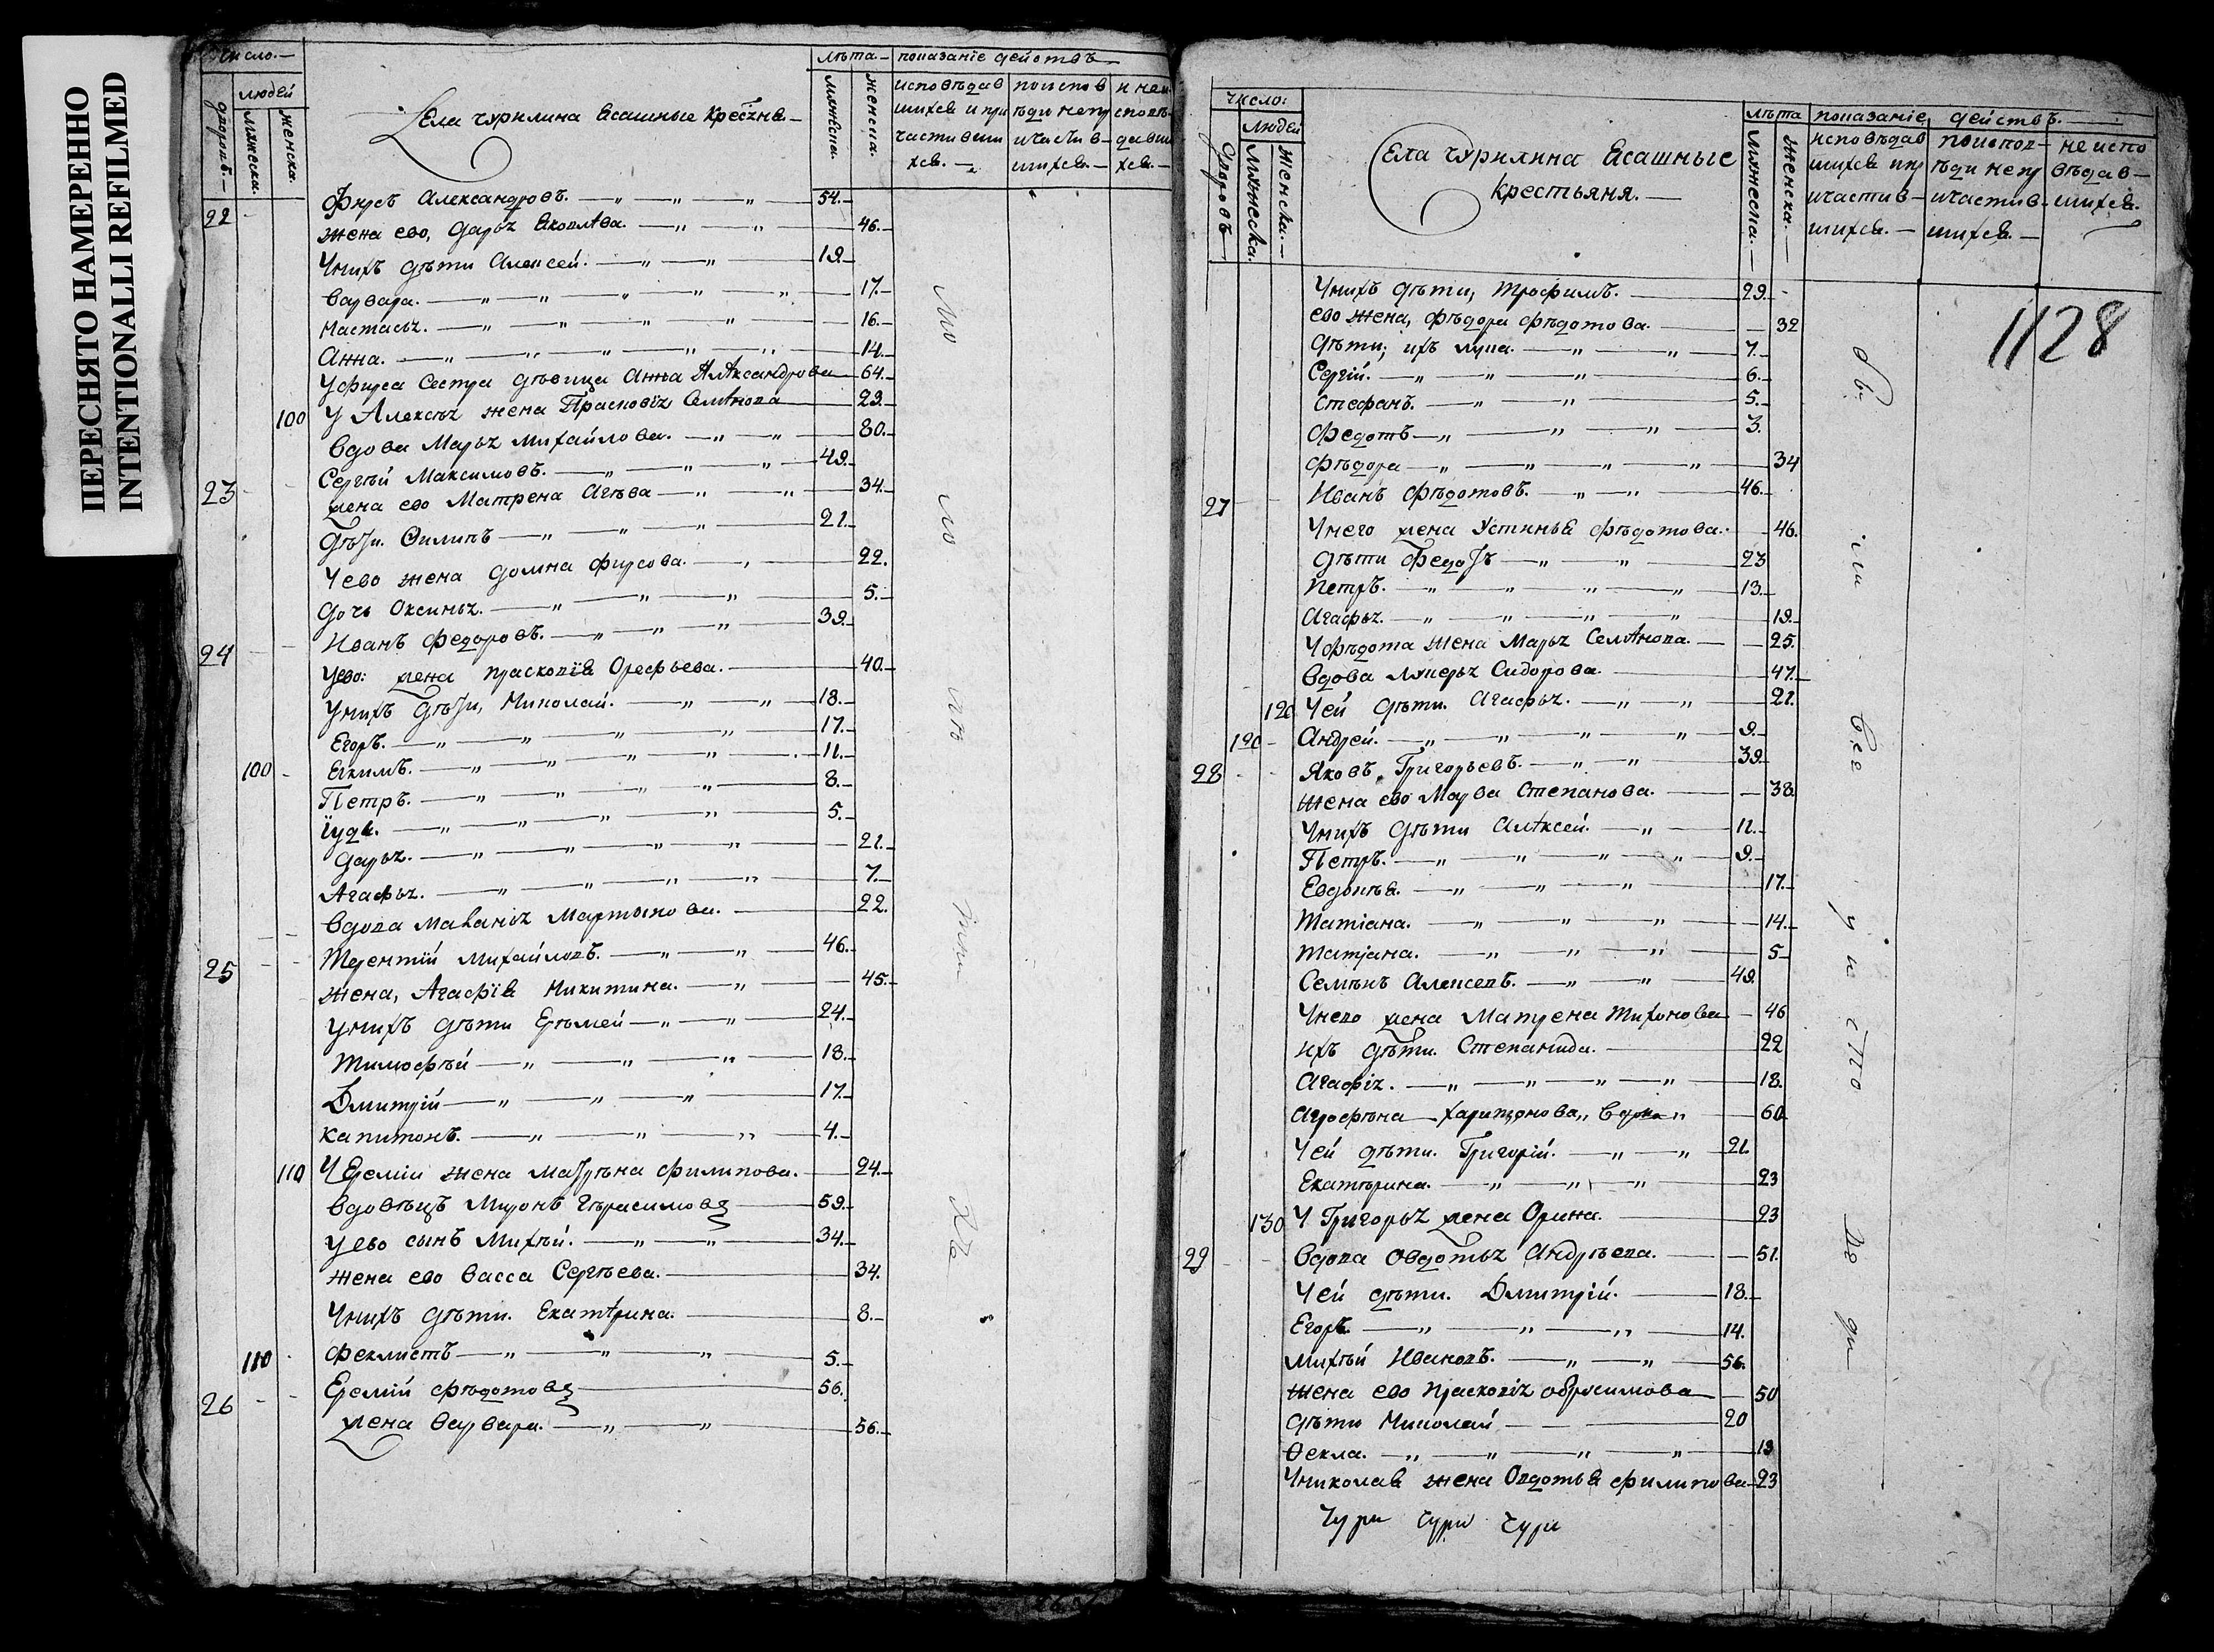 ПЕРЕСНЯТО НАМЕРЕННО
INTENTIONALLI REFILMED
Число.
людей
дворовъ.
мужеска.
женска.
Села чурилина Ясашные крестяне
лѣта
мужеска.
женска.
показание действъ
исповѣдав шихся и при частивши хся.
поисповѣди непричастив шихся.
и неисповѣдавшихся.
22 Фирсъ Александровъ. 54.
жена ево, дарья Яковлева. 46.
Унихъ дѣти Алексей. 19.
варвара. 17.
Настасья. 16.
Анна. 14.
Уфирса Сестра дѣвица Анна Александрова 64.
100 У Алексѣя жена Прасковiя Семенова 29.
вдова Марья Михайлова. 80.
23 Сергѣй Максимовъ. 49.
жена ево Матрена Агѣва 34.
дѣти. Филипъ 21.
Уево жена домна фирсова. 22.
дочь Оксинья. 5.
24 Иванъ федоровъ. 39.
Уево: жена прасковiя Орефьева. 40.
Унихъ дѣти, Николай. 18.
Егоръ. 17.
100 Якимъ. 11.
Петръ. 8.
Iуда. 5.
дарья. 21.
Агафья. 7.
вдова Маланья Мартынова. 22.
25 Терентiй михайловъ. 46.
жена, Агафiя Никитина. 45.
унихъ дѣти Ерѣмей 24.
Тимофѣй 18.
Дмитрiй 17.
Капитонъ. 4.
110 У Еремiи жена матрѣна филипова. 24.
вдовѣцъ Миронъ Гѣрасимовъ 59.
уево сынъ Михѣй. 34.
жена ево васса Сергѣева. 34.
Унихъ дѣти. Екатерина. 8.
110 феклистъ 5.
26 Еремiй фѣдотовъ 56.
жена варвара. 56.
число:
людей
дворовъ
мужеска.
женска.
Села чурилина Ясашные
крестьяня.
лѣта
мужеска.
женска.
показание действъ.
исповѣдав шихся при частив шихся.
поисповѣди непричастив шихся.
неисповѣдав шихся.
1128
Унихъ дѣти, трофимъ. 29.
ево жена, фѣдора фѣдотова. 32
дѣти; ихъ лупа. 7.
Сергiй. 6.
Стефанъ. 5.
федотъ 3.
фѣдора 34
27 Иванъ фѣдотовъ. 46.
Унего жена Устинья фѣдотова. 46.
дѣти федотъ 23
Петръ. 13.
Агафья. 19.
Уфѣдота жена Марья Семенова. 25.
вдова лукерья Сидорова. 47.
120 Уей дѣти. Агафья. 21.
120 Андрей. 9.
28 Яковъ Григорьевъ. 39.
жена ево Марва Степанова. 38.
Унихъ дѣти Алексей. 11.
Петръ. 9.
Евдокѣя. 17.
татiана. 14.
татiана. 5
Семѣнъ Алексевъ. 49.
Унево жена Матрена тихонова 46
ихъ дѣти. Степанида. 22
Агафiя. 18.
Агрофѣна харитонова, вдова 60
Уей дѣти. Григорiй. 21.
Екатѣрина. 23
130 У Григорья жена Орина. 23
29 вдова Овдотья Андрѣева. 51.
Уей дѣти. Дмитрiй. 18.
Егоръ. 14.
михѣй Ивановъ. 56.
жена ево прасковiя обросимова 50
дѣти Николай 20
Фекла. 19
Униколая жена Овдотья филипова 23
Чури чури чури